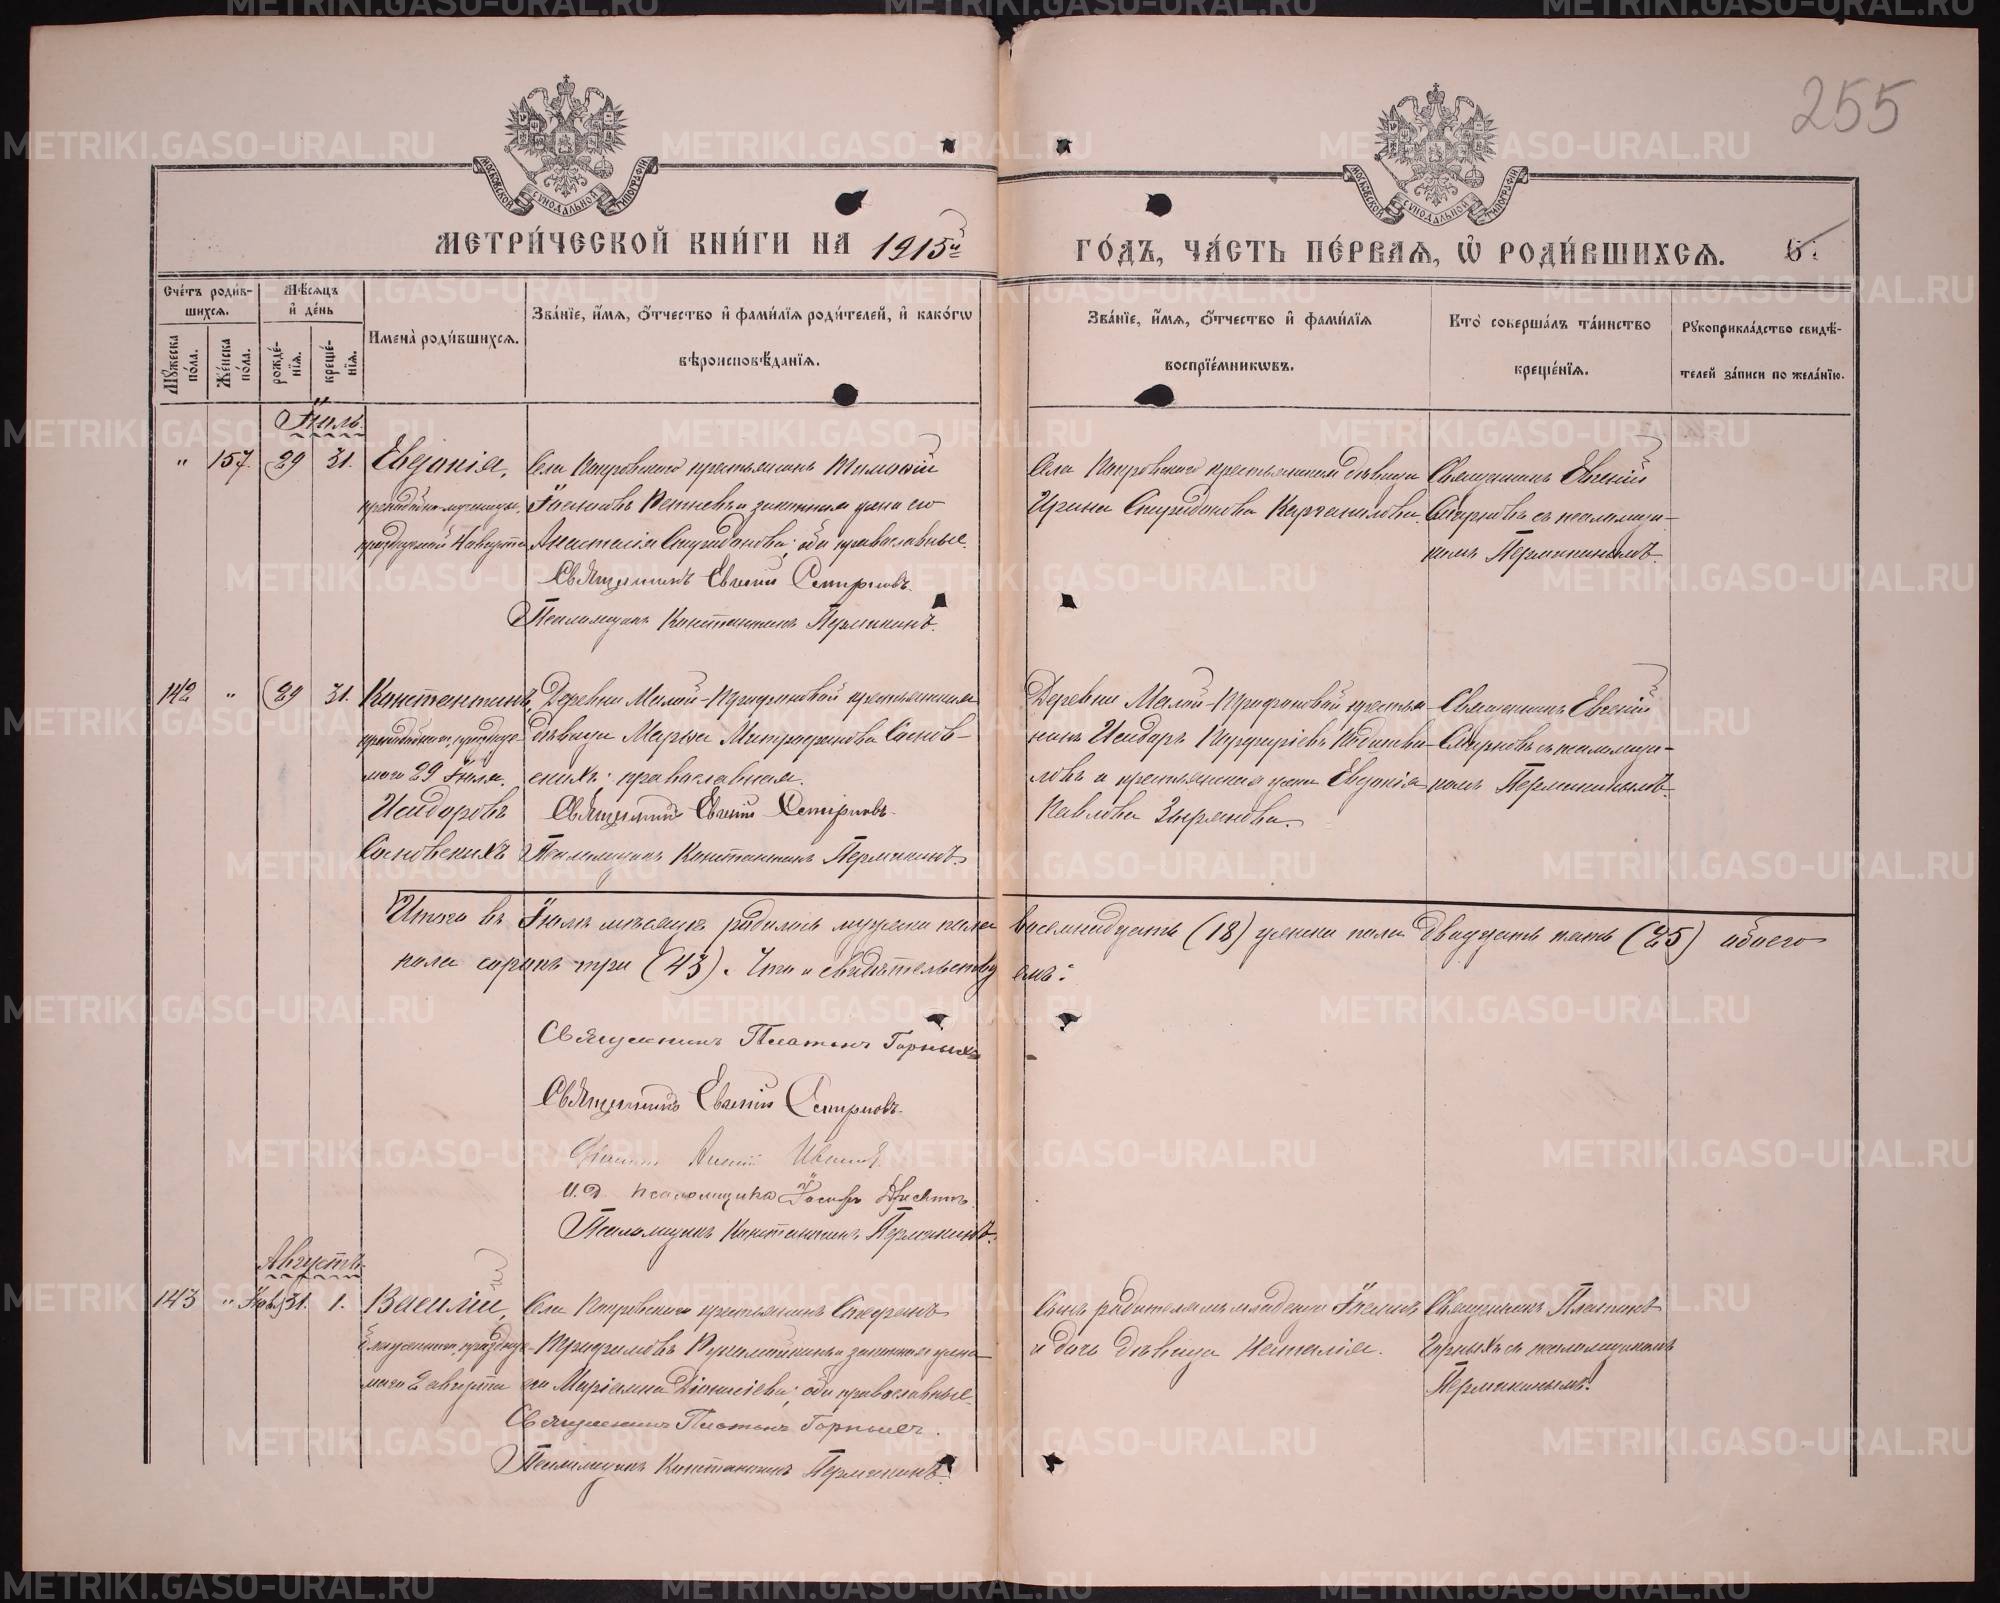 255
МОСКОВСКОЙ СѴНОДАЛЬНОЙ ТИПОГРАФІИ
МОСКОВСКОЙ СѴНОДАЛЬНОЙ ТИПОГРАФІИ
МЕТРИ́ЧЕСКОЙ КНИ́ГИ НА 1915й
ГО́ДЪ, ЧА́СТЬ ПЕ́РВАѦ, Ѡ҆ РОДИ́ВШИХСѦ.
Сче́тъ роди́в-
шихсѧ.
Му́жеска по́ла.
Же́нска по́ла.
Мѣ́сѧцъ и҆ де́нь
рожде́-
нїѧ.
креще́-
нїѧ.
Имена̀ роди́вшихсѧ.
Зва́нїе, и҆́мѧ, ѻ҆́тчество и҆ фами́лїѧ роди́телей, и҆ како́гѡ
вѣроисповѣ́данїѧ.
Зва́нїе, и҆́мѧ, ѻ҆́тчество и҆ фами́лїѧ
воспрїе́мникѡвъ.
Кто̀ соверша́лъ та́инство
креще́нїѧ.
Рꙋкоприкла́дство свидѣ́-
телей за́писи по жела́нїю.
Іюль.
" 157. 29 31. Евдокія,
Села Покровского крестьянинъ Тимофій
и законная жена его
Анастасія Спиридонова; оба православные.
Священникъ Евгеній Смирновъ.
Псаломщикъ Константинъ Пермякинъ.
Села Покровского крестьянская дѣвица
Ирина Спиридонова
Священникъ Евгеній
Смирновъ съ псаломщи-
комъ Пермякинымъ.
142 " 29 31. Константинъ,
празднуе-
маго 29 Іюля.
Исидоровъ
Сосновскихъ
Деревни Малой-Трифоновой крестьянская
дѣвица Марѳа Митрофанова Соснов-
скихъ; православная.
Священникъ Евгеній Смирновъ.
Псаломщикъ Константинъ Пермякинъ.
Деревни Малой-Трифоновой крестья-
нинъ Исидоръ
ловъ и крестьянская жена Евдокія
Павлова Зырянова.
Священникъ Евгеній
Смирновъ съ псаломщи-
комъ Пермякинымъ.
Итого въ Іюлѣ мѣсяцѣ родилось мужска пола восемнадцать (18) женска пола двадцать пять (25) обоего
пола сорокъ три (43). Что и свидѣтельствуемъ:
Священникъ Платонъ Горныхъ
Священникъ Евгеній Смирновъ.
И.д. псаломщика Іосифъ
Псаломщикъ Константинъ Пермякинъ.
Августъ.
143 " Іюль 31. 1. Василій,
празднуе-
маго 2 августа
Села Покровского крестьянинъ Стефанъ
и законная жена
его Маріамна Діонисіева; оба православные.
Священникъ Платонъ Горныхъ.
Псаломщикъ Константинъ Пермякинъ.
и дочь дѣвица Наталія.
Священникъ Платонъ
Горныхъ съ псаломщикомъ
Пермякинымъ.
METRIKI.GASO-URAL.RU